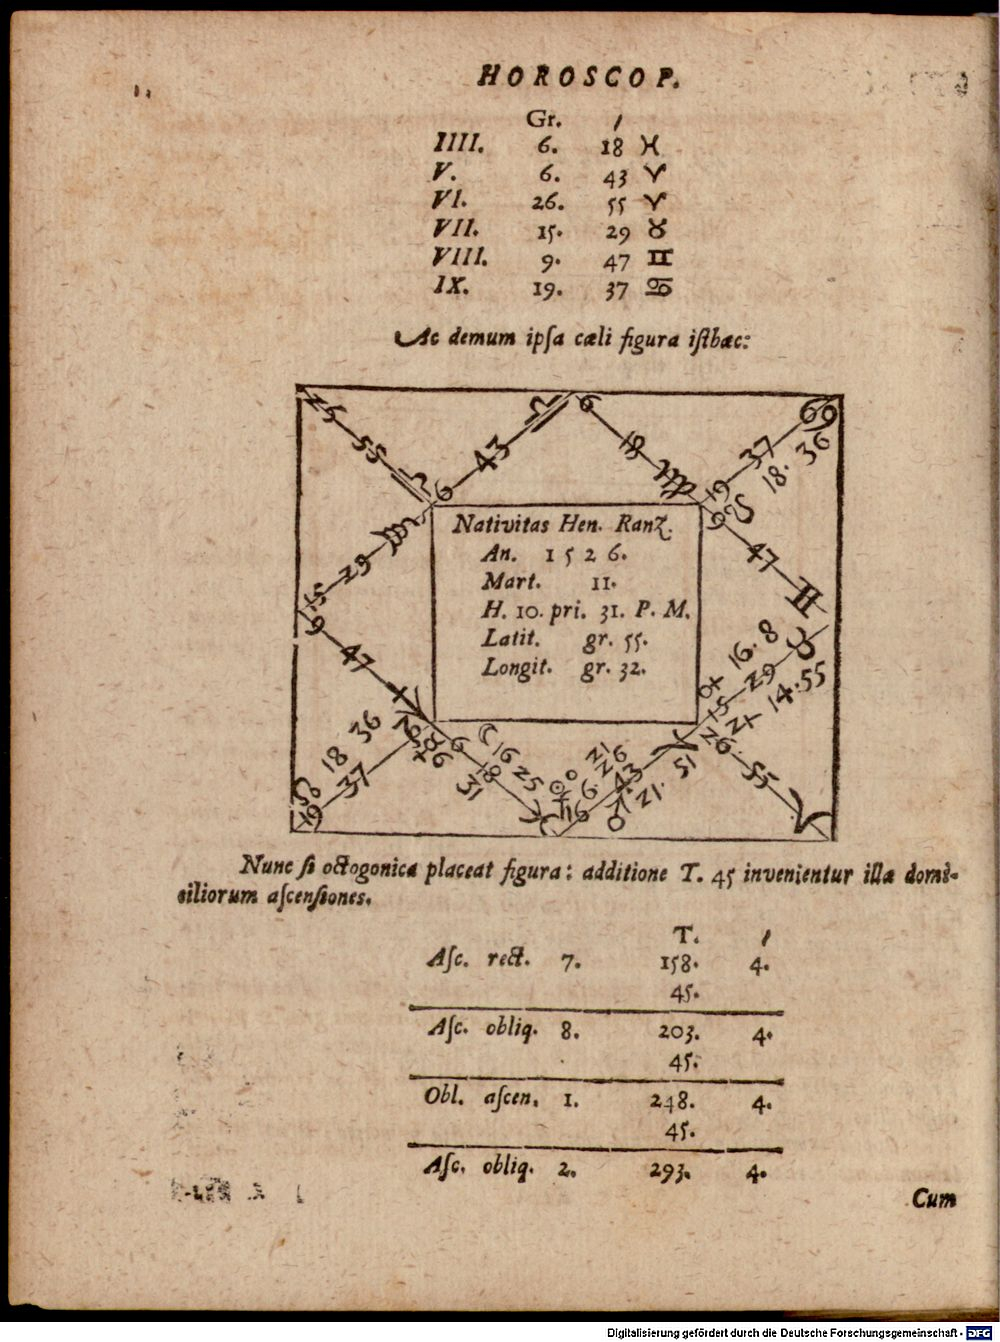 HOROSCOP.
Gr. ′
IIII. 6. 18 ♓
V. 6. 43 ♈
VI. 26. 55 ♈
VII. 15. 29 ♉
VIII. 9. 47 ♊
IX. 19. 37 ♋
Ac demum ipſa cæli figura iſthæc:
25 55 ♎
6 43 ♎
6 18 ♍
19 37 ♋
☊ 18. 36
9 47 ♊
15 29 ♏
9 47 ♐
Nativitas Hen. Ranz.
An. 1526.
Mart. 11.
H. 10. pri. 31. P. M.
Latit. gr. 55.
Longit. gr. 32.
♀ 16. 8
15 29 ♉
♃ 14. 55
26. 55 ♈
☋ 18 36
19 37
6 18 ♓
☽ 16 25
6. 43 ♈
♂ 21. 51
Nunc ſi octogonica placeat figura: additione T. 45 invenientur illa domi-
ciliorum aſcenſiones.
T. ′
Aſc. rect. 7. 158. 4.
45.
Aſc. obliq. 8. 203. 4.
45.
Obl. aſcen. 1. 248. 4.
45.
Aſc. obliq. 2. 293. 4.
Cum
Digitalisierung gefördert durch die Deutsche Forschungsgemeinschaft - DFG